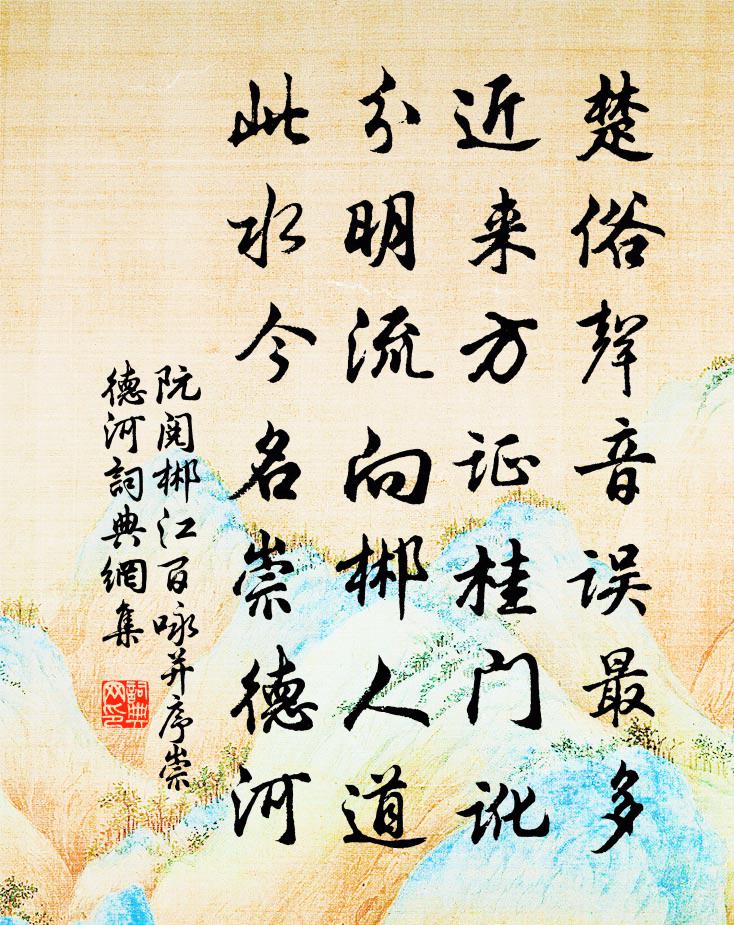 楚俗聲音误最多
近来方证桂门讹
分明流向郴人道
此水今名崇德河
阮阅郴江百咏并序崇
德河詞典網集
詞典
网印